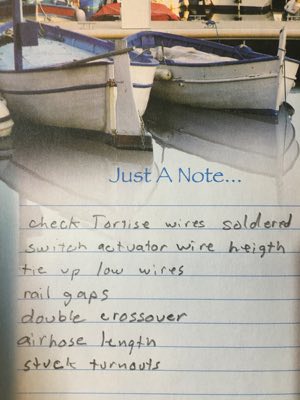 Just A Note...
check Tortise wires soldered
switch actuator wire heigth
tie up low wires
rail gaps
double crossover
airhose length
stuck turnouts